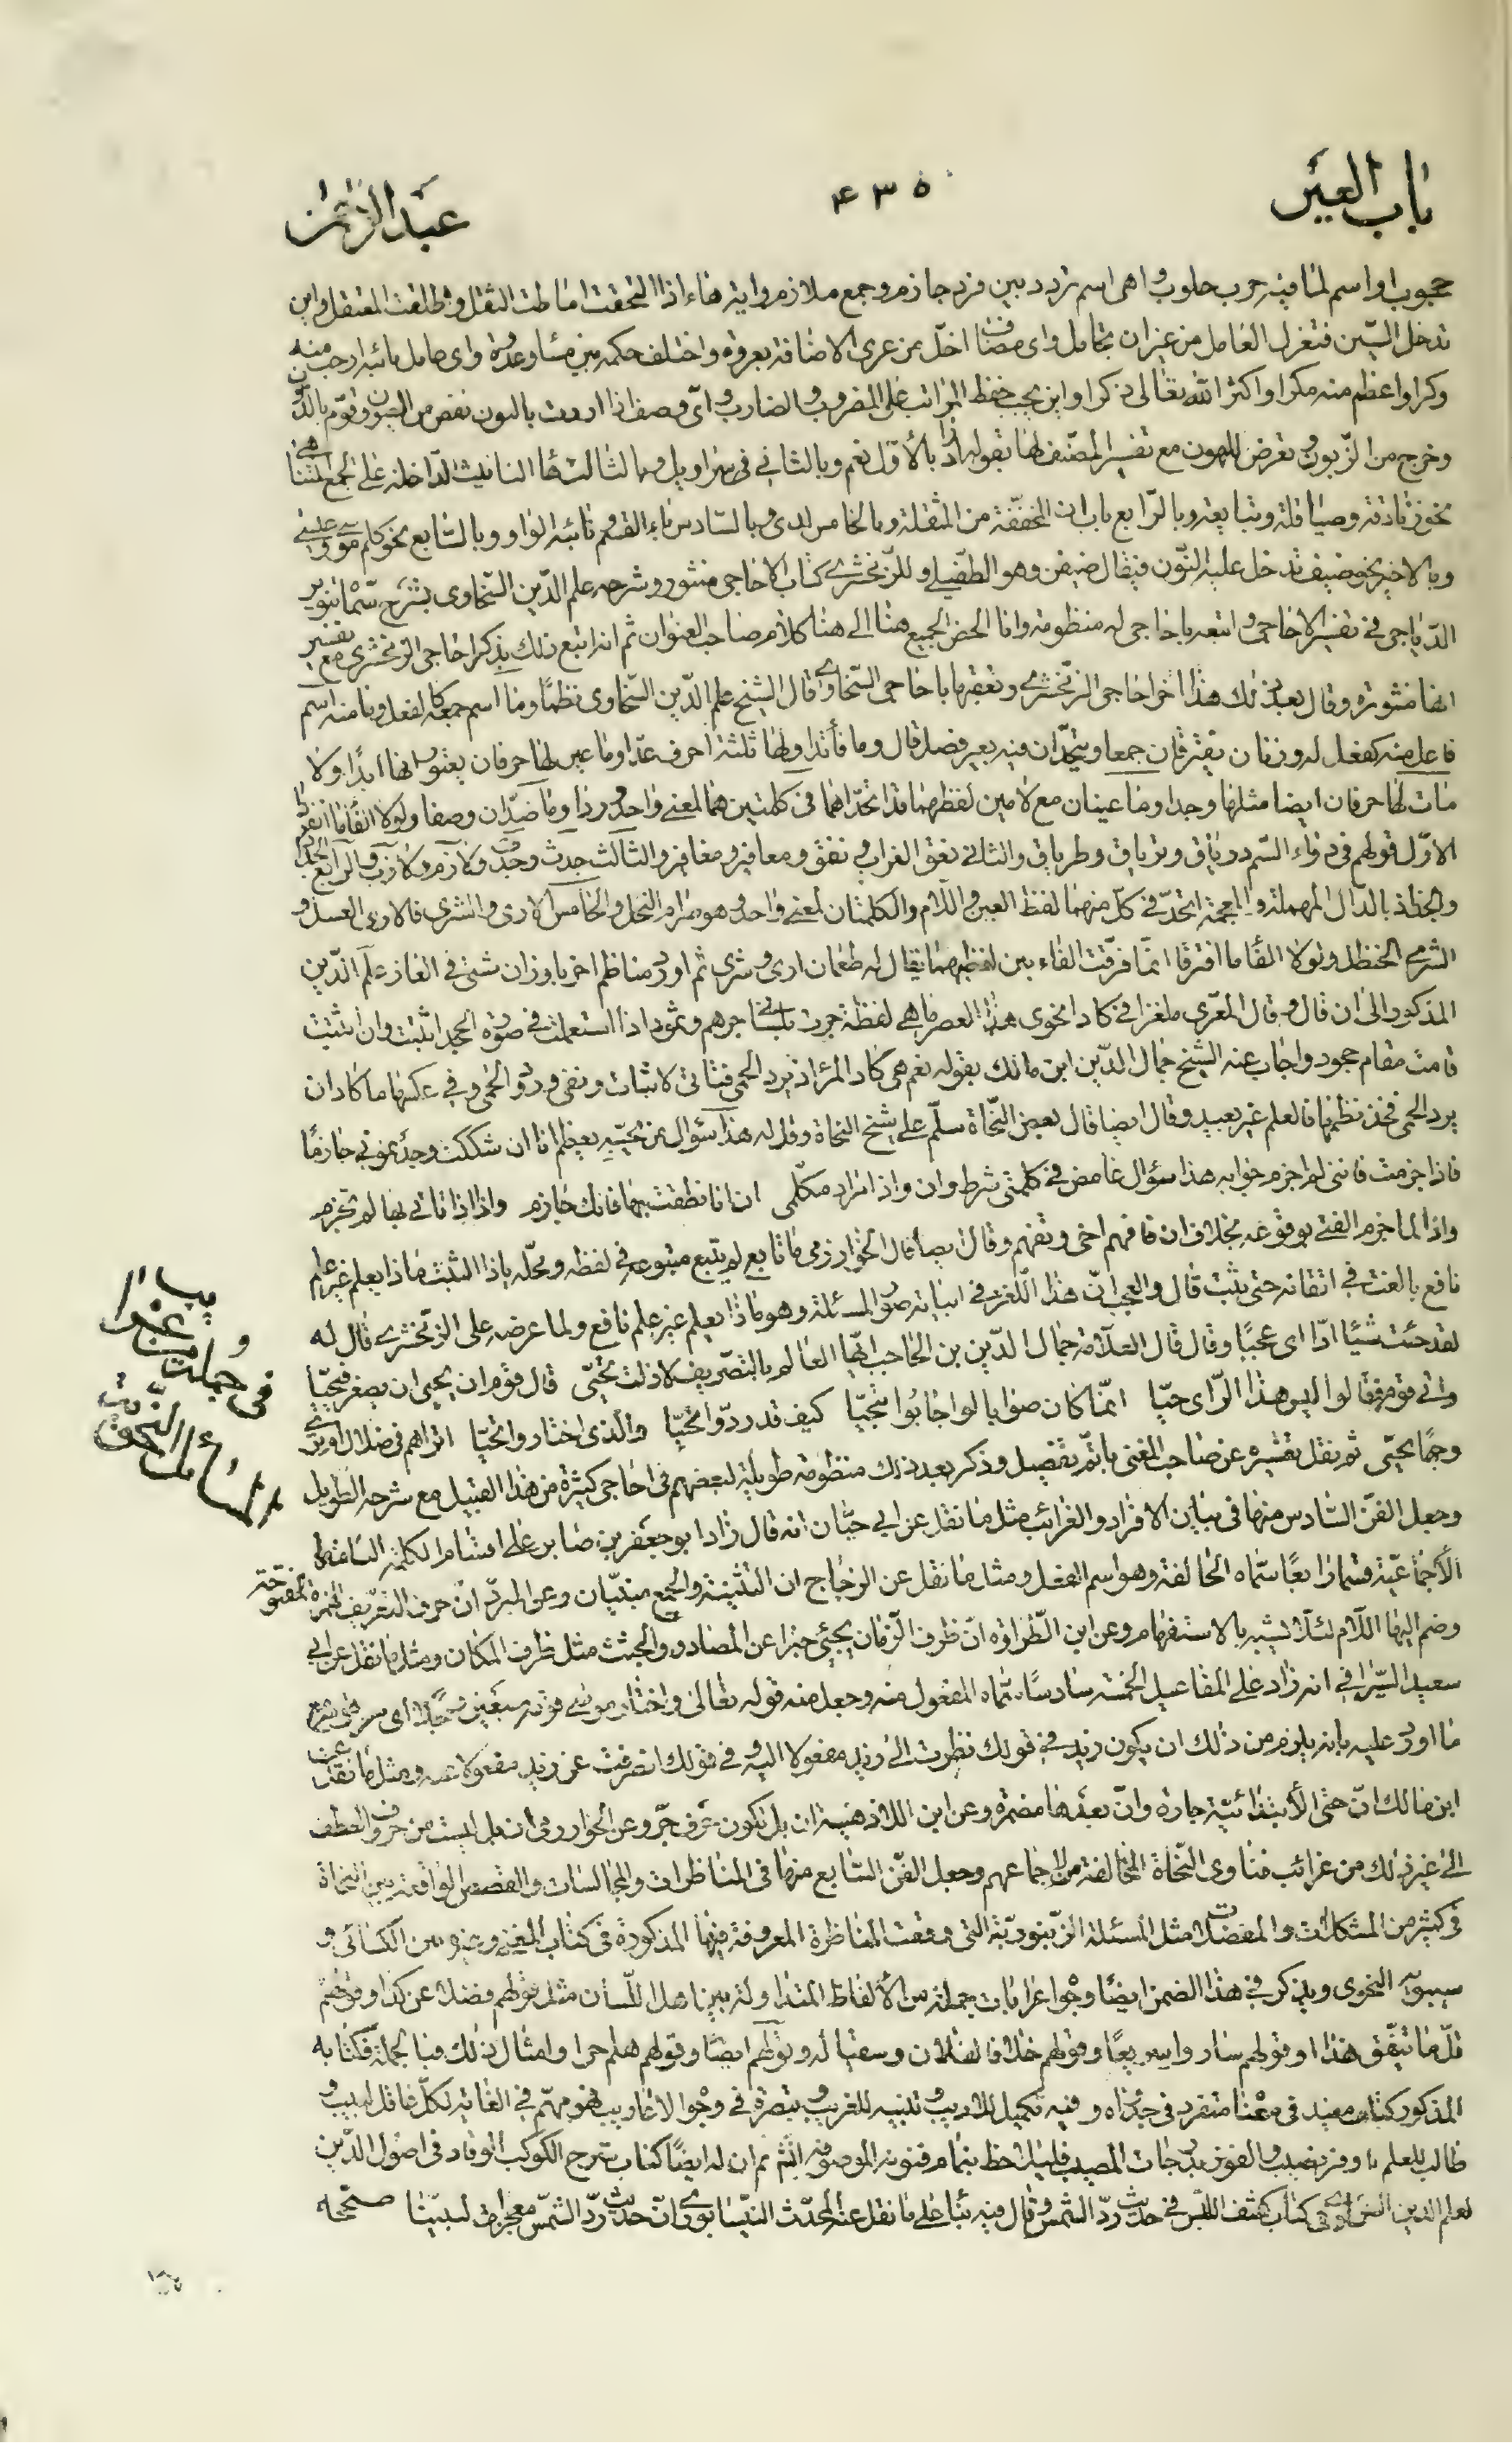 باب العين
٤٣٥
عبد الرحمن
محبوب او اسم لما فيه حرف حلوب واهى اسم تردد بين فرد حازم وجمع ملازم واية هاء اذا التحقت اماطت الثقل واطلقت المعتقل واين
تدخل السين فتعزل العامل من غير ان تجامل واى مضاف اخل من عرى الاضافة بعروة واختلف حكمه بين مساء وغدوة واى عامل نائبه ارحب منه
وكرا واعظم منه مكرا واكثر الله تعالى ذكرا واين يجب حفظ المراتب على المضروب والضارب واى وصف اذا اردف بالنون نقص من العيون وقوم بالدون
وخرج من الزبون وتعرض للهون مع تفسير المصنف لها بقوله اراد بالاول نعم وبالثانى فى سراويل وبالثالث هاء التانيث الداخلة على الجمع المتناهى
نحو زنادقة وصياقلة وتبابعة وبالرابع باب ان المخففة من المثقلة وبالخامس لدى وبالسادس باء القسم نائبه الواو وبالسابع نحو كلم موسى عيسى
وبالاخير نحو ضيف تدخل عليه النون فيقال ضيفن وهو الطفيلى وللزمخشرى كتاب الاحاجى منثور وشرحه علم الدين السخاوى بشرح سماه تنوير
الدياجى فى تفسير الاحاجى واتبعه باحاجى له منظومة وانا الخص الجميع هنا الى هنا كلام صاحب العنوان ثم انه اتبع ذلك بذكر احاجى الزمخشرى مع تفسير
انها منثورة وقال بعد ذلك هذا اخر احاجى الزمخشرى وتعقبها باحاجى السخاوى قال الشيخ علم الدين السخاوى نظما وما اسم جمعه كالفعل وما منه اسم
فاعل منه كفعل له وزنان يفترقان جمعا ويتحدان فيه بغير فصل قال وما فاء تداولها ثلثة احرف عدا وما عين لها حرفان يعتورانها ابدا ولا
مات لها حرفان ايضا مثلها وجدا وما عينان مع لامين لفظهما قد اتحدا هما فى كلمتين هما لمعنى واحد وردا وما ضدان وصفا ولولا الفاء ما انفردا
الاول قولهم فى دواء السم درياق وترياق وطرياق والثانى نعق الغراب ونغق ومعافير ومغافير والثالث جدث وجدف ولازم ولازب والرابع الجد
والجذ بالدال المهملة والمعجمة اتحد فى كل منهما لفظ العين واللام والكلمتان لمعنى واحد وهو صرام النخل والخامس الارى والشرى فالارى العسل و
الشرى الحنظل ولولا الفاء ما افترقا انما فرقت الفاء بين لفظيهما يقال له طعمان ارى وشرى ثم اورد مناظم اخر باوزان شتى فى الغاز علم الدين
المذكور الى ان قال وقال المعرى ملغزا فى كاد انحوى هذا العصر ما هى لفظة جرت بلسانى جرهم وثمود اذا استعملت فى صورة الجحد اثبتت وان اثبتت
قامت مقام جحود واجاب عنه الشيخ جمال الدين ابن مالك بقوله نعم هى كاد المرء ان يرد الحمى فتاتى لاثبات ونفى ورود الحمى وفى عكسها ما كاد ان
يرد الحمى فخذ نظمها فالعلم غير بعيد وقال ايضا قال بعض النحاة سلم على شيخ النحاة وقل له هذا سؤال من يجبه يعظم انا ان شككت وجدتمونى جازما
فاذا جزمت فاننى لم اجزم جوابه هذا سؤال غامض فى كلمتى شرط وان واذا مراد مكلمى ان انا نطقت بها فانك جازم واذا اذا تاتى بها لم تجزم
واذا لما جزم الفتى بوقوعه بخلاف ان فافهم اخى وتفهم وقال ايضا قال الخوارزمى ما تابع لم يتبع متبوعه فى لفظه ومحله ياذا الثبت ماذا يعلم غير علم
نافع بالغت فى اتقانه حتى يثبت قال والعجب ان هذا اللغز فى ابياته صور المسئلة وهو ماذا يعلم غير علم نافع ولما عرضه على الزمخشرى قال له
لقد جئت شيئا ادا اى عجبا وقال قال العلامة جمال الدين بن الحاجب ايها العالم بالتصريف لا زلت تحيى قال قوم ان يحيى ان يصغر فيحيا
وابى قوم فقالوا ليس هذا الراى حيا انما كان صوابا لو اجابوا بيحيا كيف قد ردوا يحيا والذى اختاروا يحيا اتراهم فى ضلال ام ترى
وجها يحيى ثم نقل تفسيره عن صاحب المغنى باتم تفصيل وذكر بعد ذلك منظومة طويلة لبعضهم فى احاجى كثيرة من هذا القبيل مع شرحه الطويل
وجعل الفن السادس منها فى بيان الافراد والغرائب مثل ما نقل عن ابى حيان انه قال زاد ابو جعفر بن صابر على اقسام الكلمة الثلثة
الاجماعية قسما رابعا سماه الخالفة وهو اسم الفعل ومثل ما نقل عن الزجاج ان التثنية والجمع مبنيان وعن المبرد ان حرف التعريف الهمزة المفتوحة
وضم اليها اللام لئلا يشتبه بالاستفهام وعن ابن الطراوة ان ظرف الزمان يجئ خبرا عن المصادر والجثث مثل ظرف المكان ومثل ما نقل عن ابى
سعيد السيرافى انه زاد على المفاعيل الخمسة سادسا سماه المفعول منه وجعل منه قوله تعالى واختار موسى قومه سبعين رجلا اى من قومه مع
ما اورد عليه بانه يلزم من ذلك ان يكون زيد فى قولك نظرت الى زيد مفعولا اليه وفى قولك انصرفت عن زيد مفعولا عنه ومثل ما نقل عن
ابن مالك ان حتى الابتدائية جارة وان بعدها مضمرة وعن ابن الذهبية ان بل تكون حرف جر وعن الخوارزمى ان بل ليست من حروف العطف
الى غير ذلك من غرائب فتاوى النحاة المخالفة لاجماعهم وجعل الفن السابع منها فى المناظرات والمجالسات والقصص الواقعة بين النحاة
فى كثير من المشكلات والمعضلات مثل المسئلة الزنبورية التى وقعت المناظرة المعروفة فيها المذكورة فى كتاب المغنى وغيره بين الكسائى و
سيبويه النحوى ويذكر فى هذا الضمن ايضا وجوه اعرابات جملة من الالفاظ المتداولة بين اهل اللسان مثل قولهم فضلا عن كذا وقولهم
قل ما يتفق هذا وقولهم سار وا وقولهم خلافا لفلان وسقيا له وقولهم ايضا وقولهم هلم جرا وامثال ذلك وبالجملة فكتابه
المذكور كتاب مفيد فى معناه متفرد فى وفيه تكميل للاديب وتنبيه للغريب وتبصرة فى وجوه الاعاريب فهو مهم فى الغاية لكل عاقل لبيب و
طالب للعلم باوفر نصيب والفوز بدرجات المصيب فليلاحظ بتمام فنونه الموصوفة انشم ثم ان له ايضا كتاب شرح الكوكب الوقاد فى اصول الدين
لعلم الدين السخاوى وكتاب كشف اللبس فى حديث رد الشمس وقال فيه بناء على ما نقل عنه المحدث النيسابورى ان حديث رد الشمس معجزة لنبينا صححه
بيان
غرائب
و
فى جملة من
المسائل النحوية